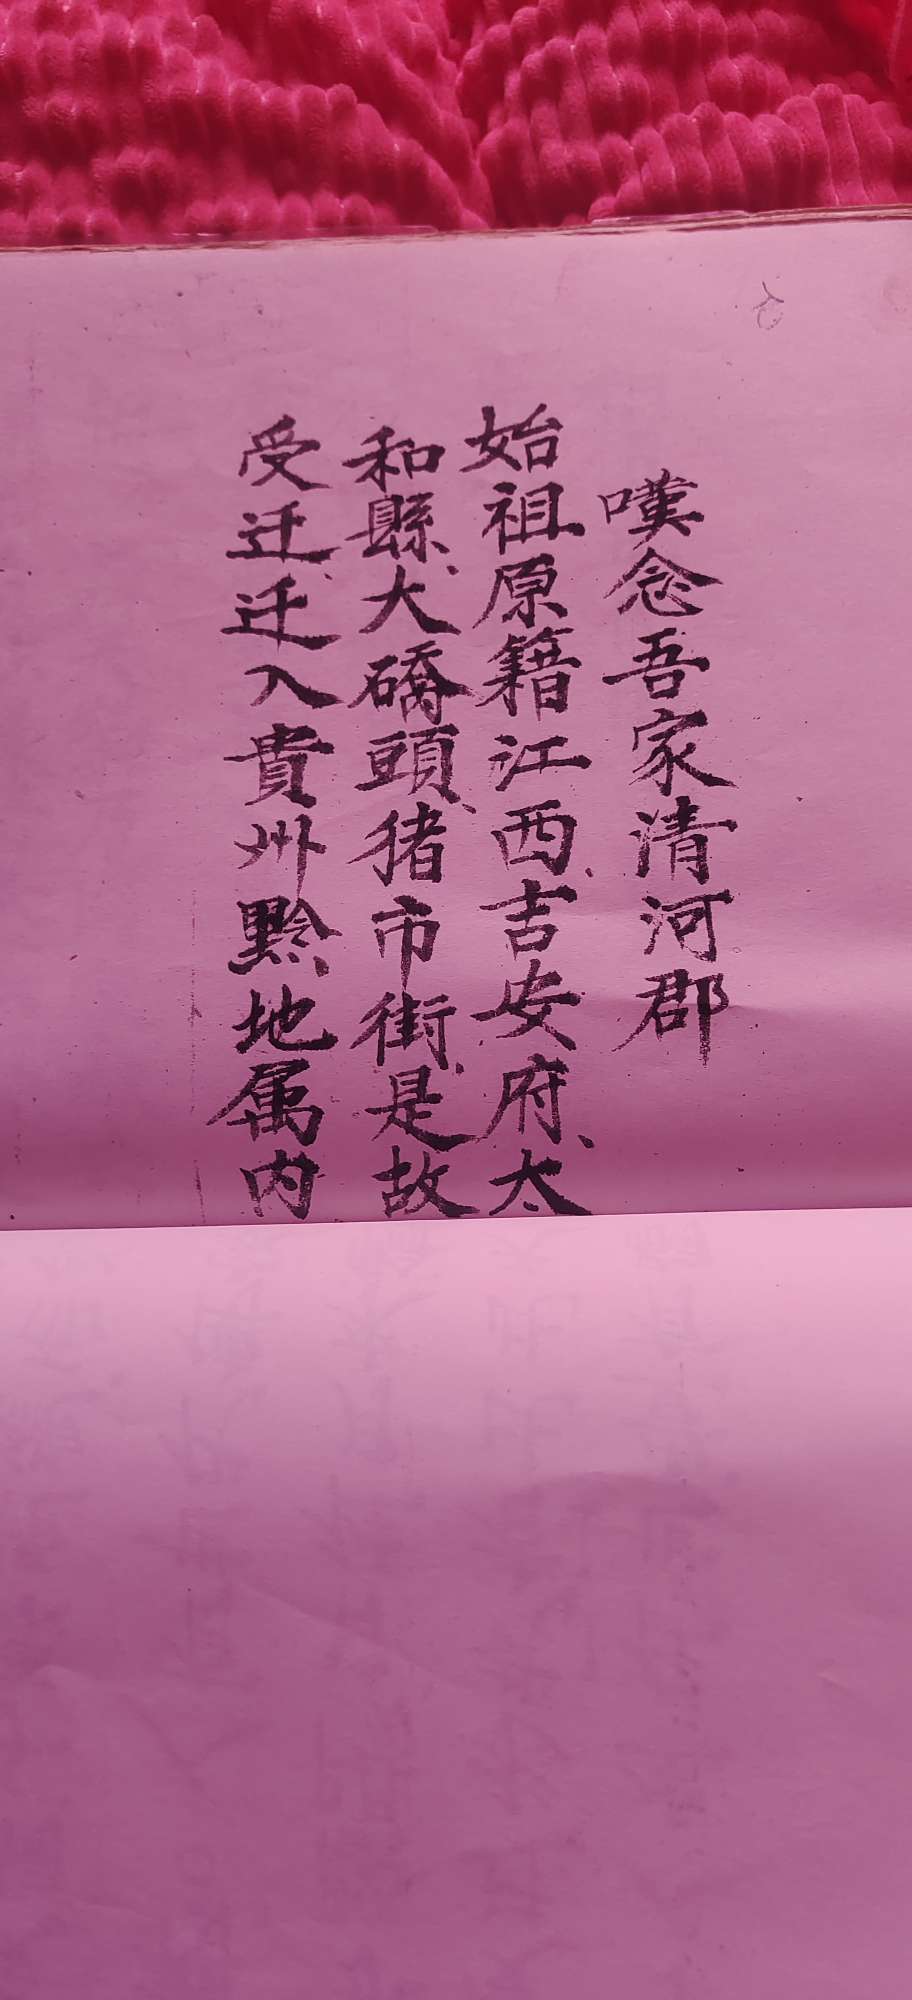 嘆念吾家清河郡
始祖原籍江西、吉安府、太
和縣、大礄頭、猪市街、是故
受迁、迁入貴州黔、地属内